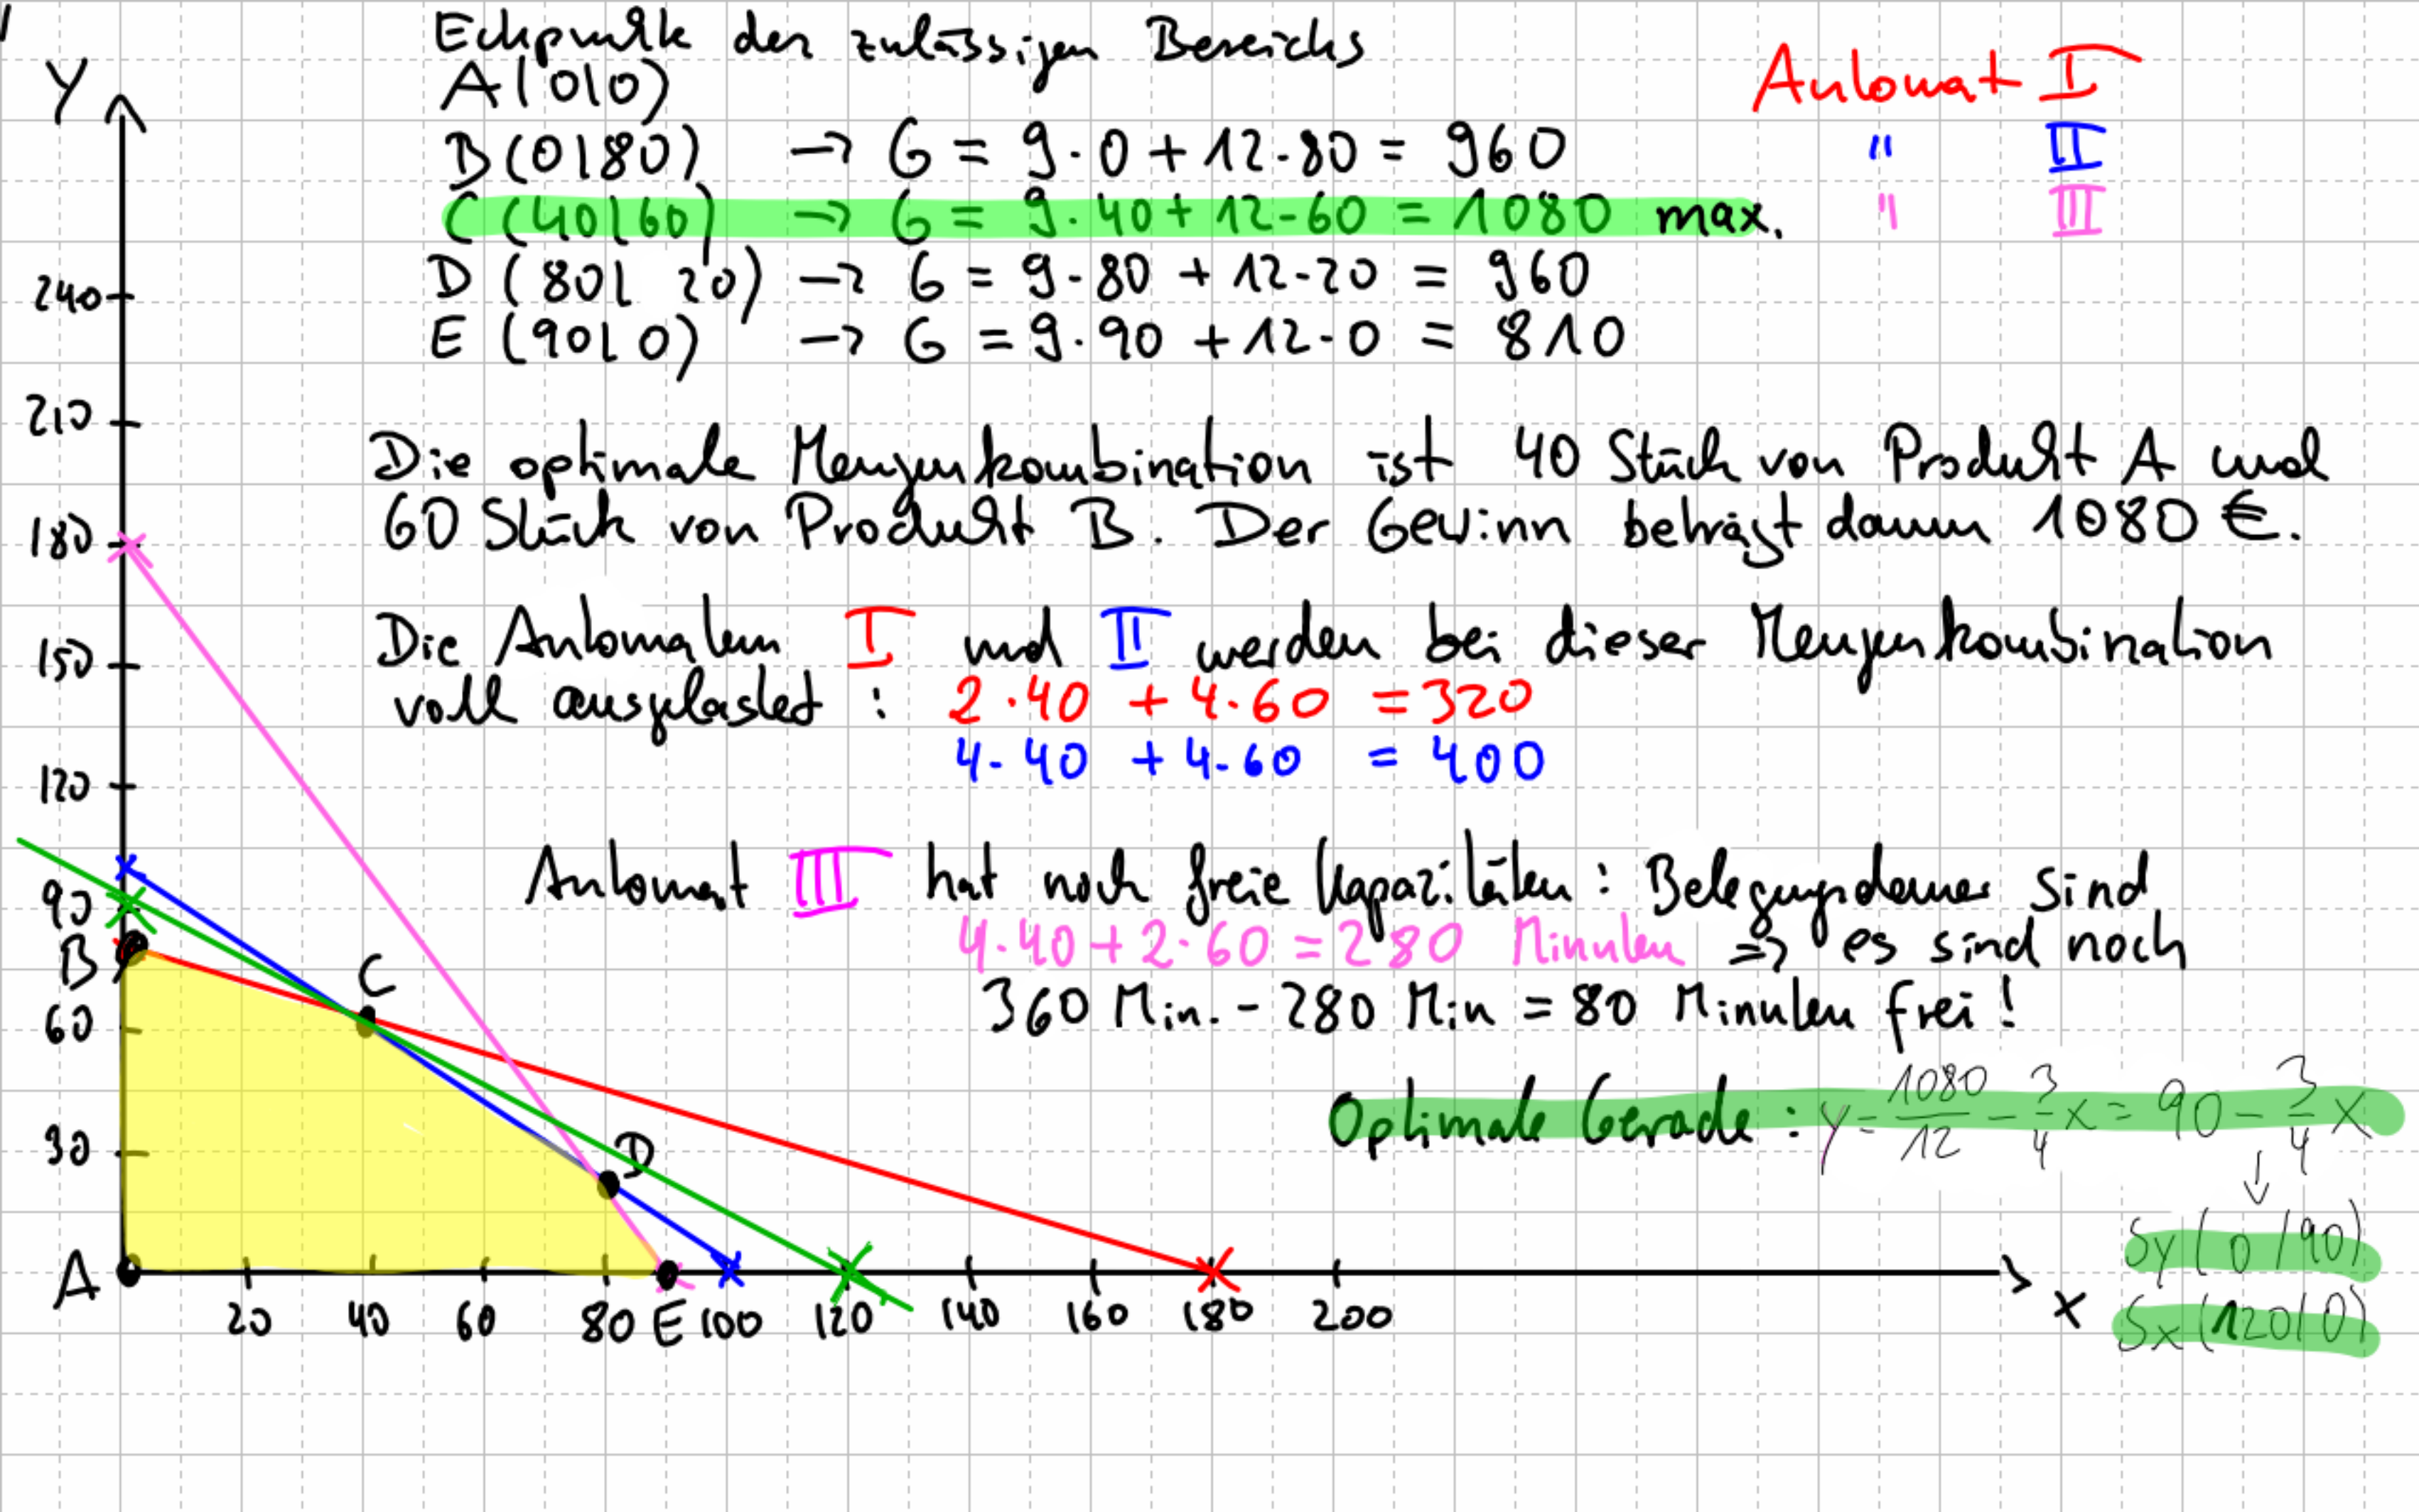 Eckpunkte des zulässigen Bereichs
A(0|0)
B(0|80) → G = 9·0 + 12·80 = 960
C(40|60) → G = 9·40 + 12·60 = 1080 max.
D(80|20) → G = 9·80 + 12·20 = 960
E(90|0) → G = 9·90 + 12·0 = 810
Automat I
" II
" III
Die optimale Mengenkombination ist 40 Stück von Produkt A und
60 Stück von Produkt B. Der Gewinn beträgt dann 1080 €.
Die Automaten I und II werden bei dieser Mengenkombination
voll ausgelastet: 2·40 + 4·60 = 320
4·40 + 4·60 = 400
Automat III hat noch freie Kapazitäten: Belegungsdauer sind
4·40 + 2·60 = 280 Minuten ⇒ es sind noch
360 Min. - 280 Min = 80 Minuten frei!
Optimale Gerade: y = 1080/12 - 3/4 x = 90 - 3/4 x
↓
Sy(0|90)
Sx(120|0)
Y
240
210
180
150
120
90
B
60
30
A
C
D
20 40 60 80 E 100 120 140 160 180 200
x